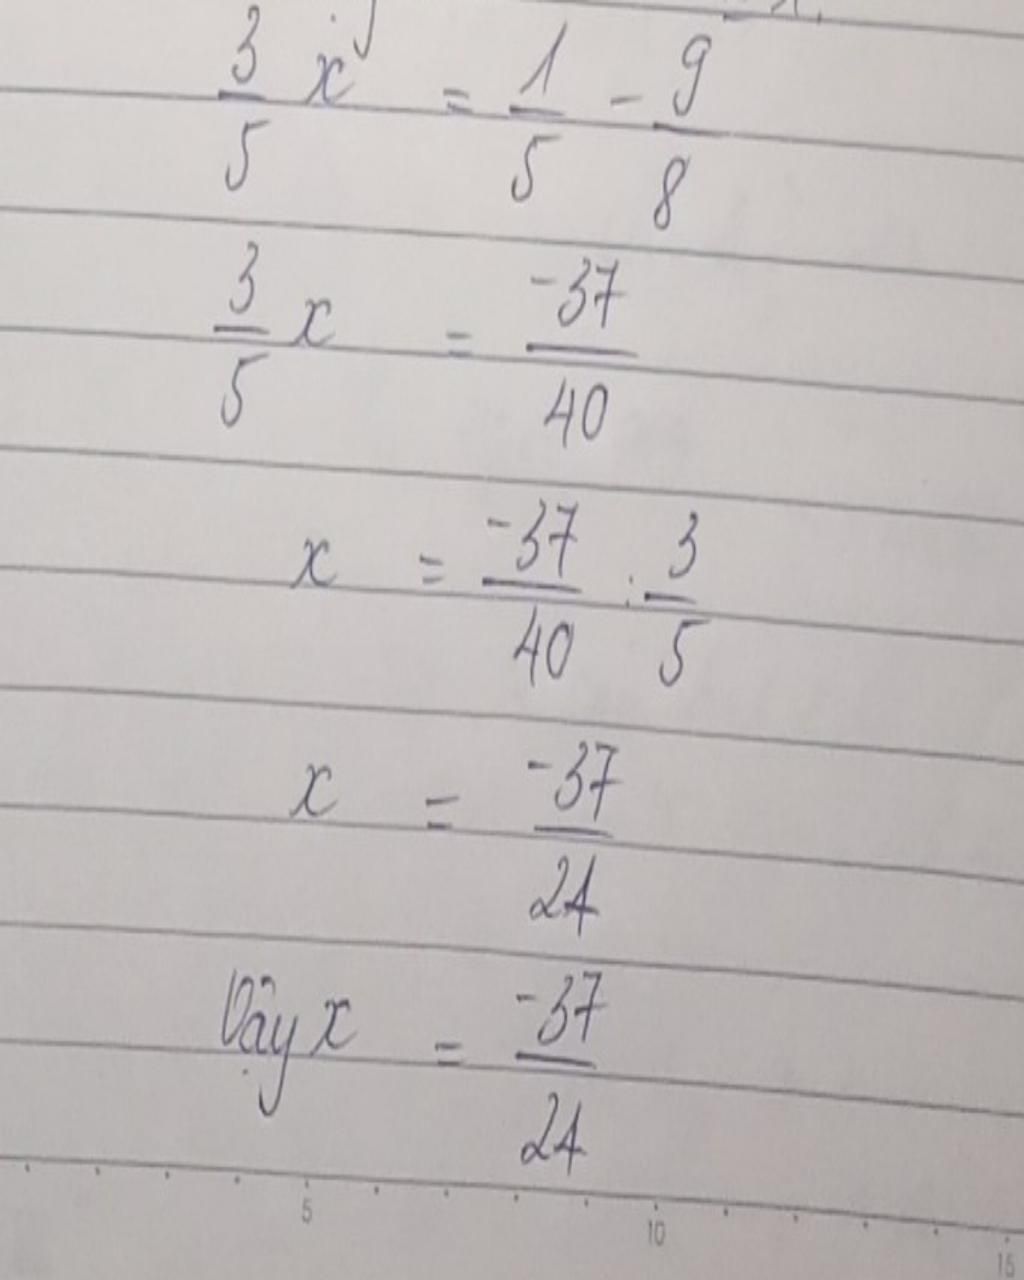 3/5 x = 1/5 - 9/8
3/5 x = -37/40
x = -37/40 : 3/5
x = -37/24
Vậy x = -37/24
5 10 15